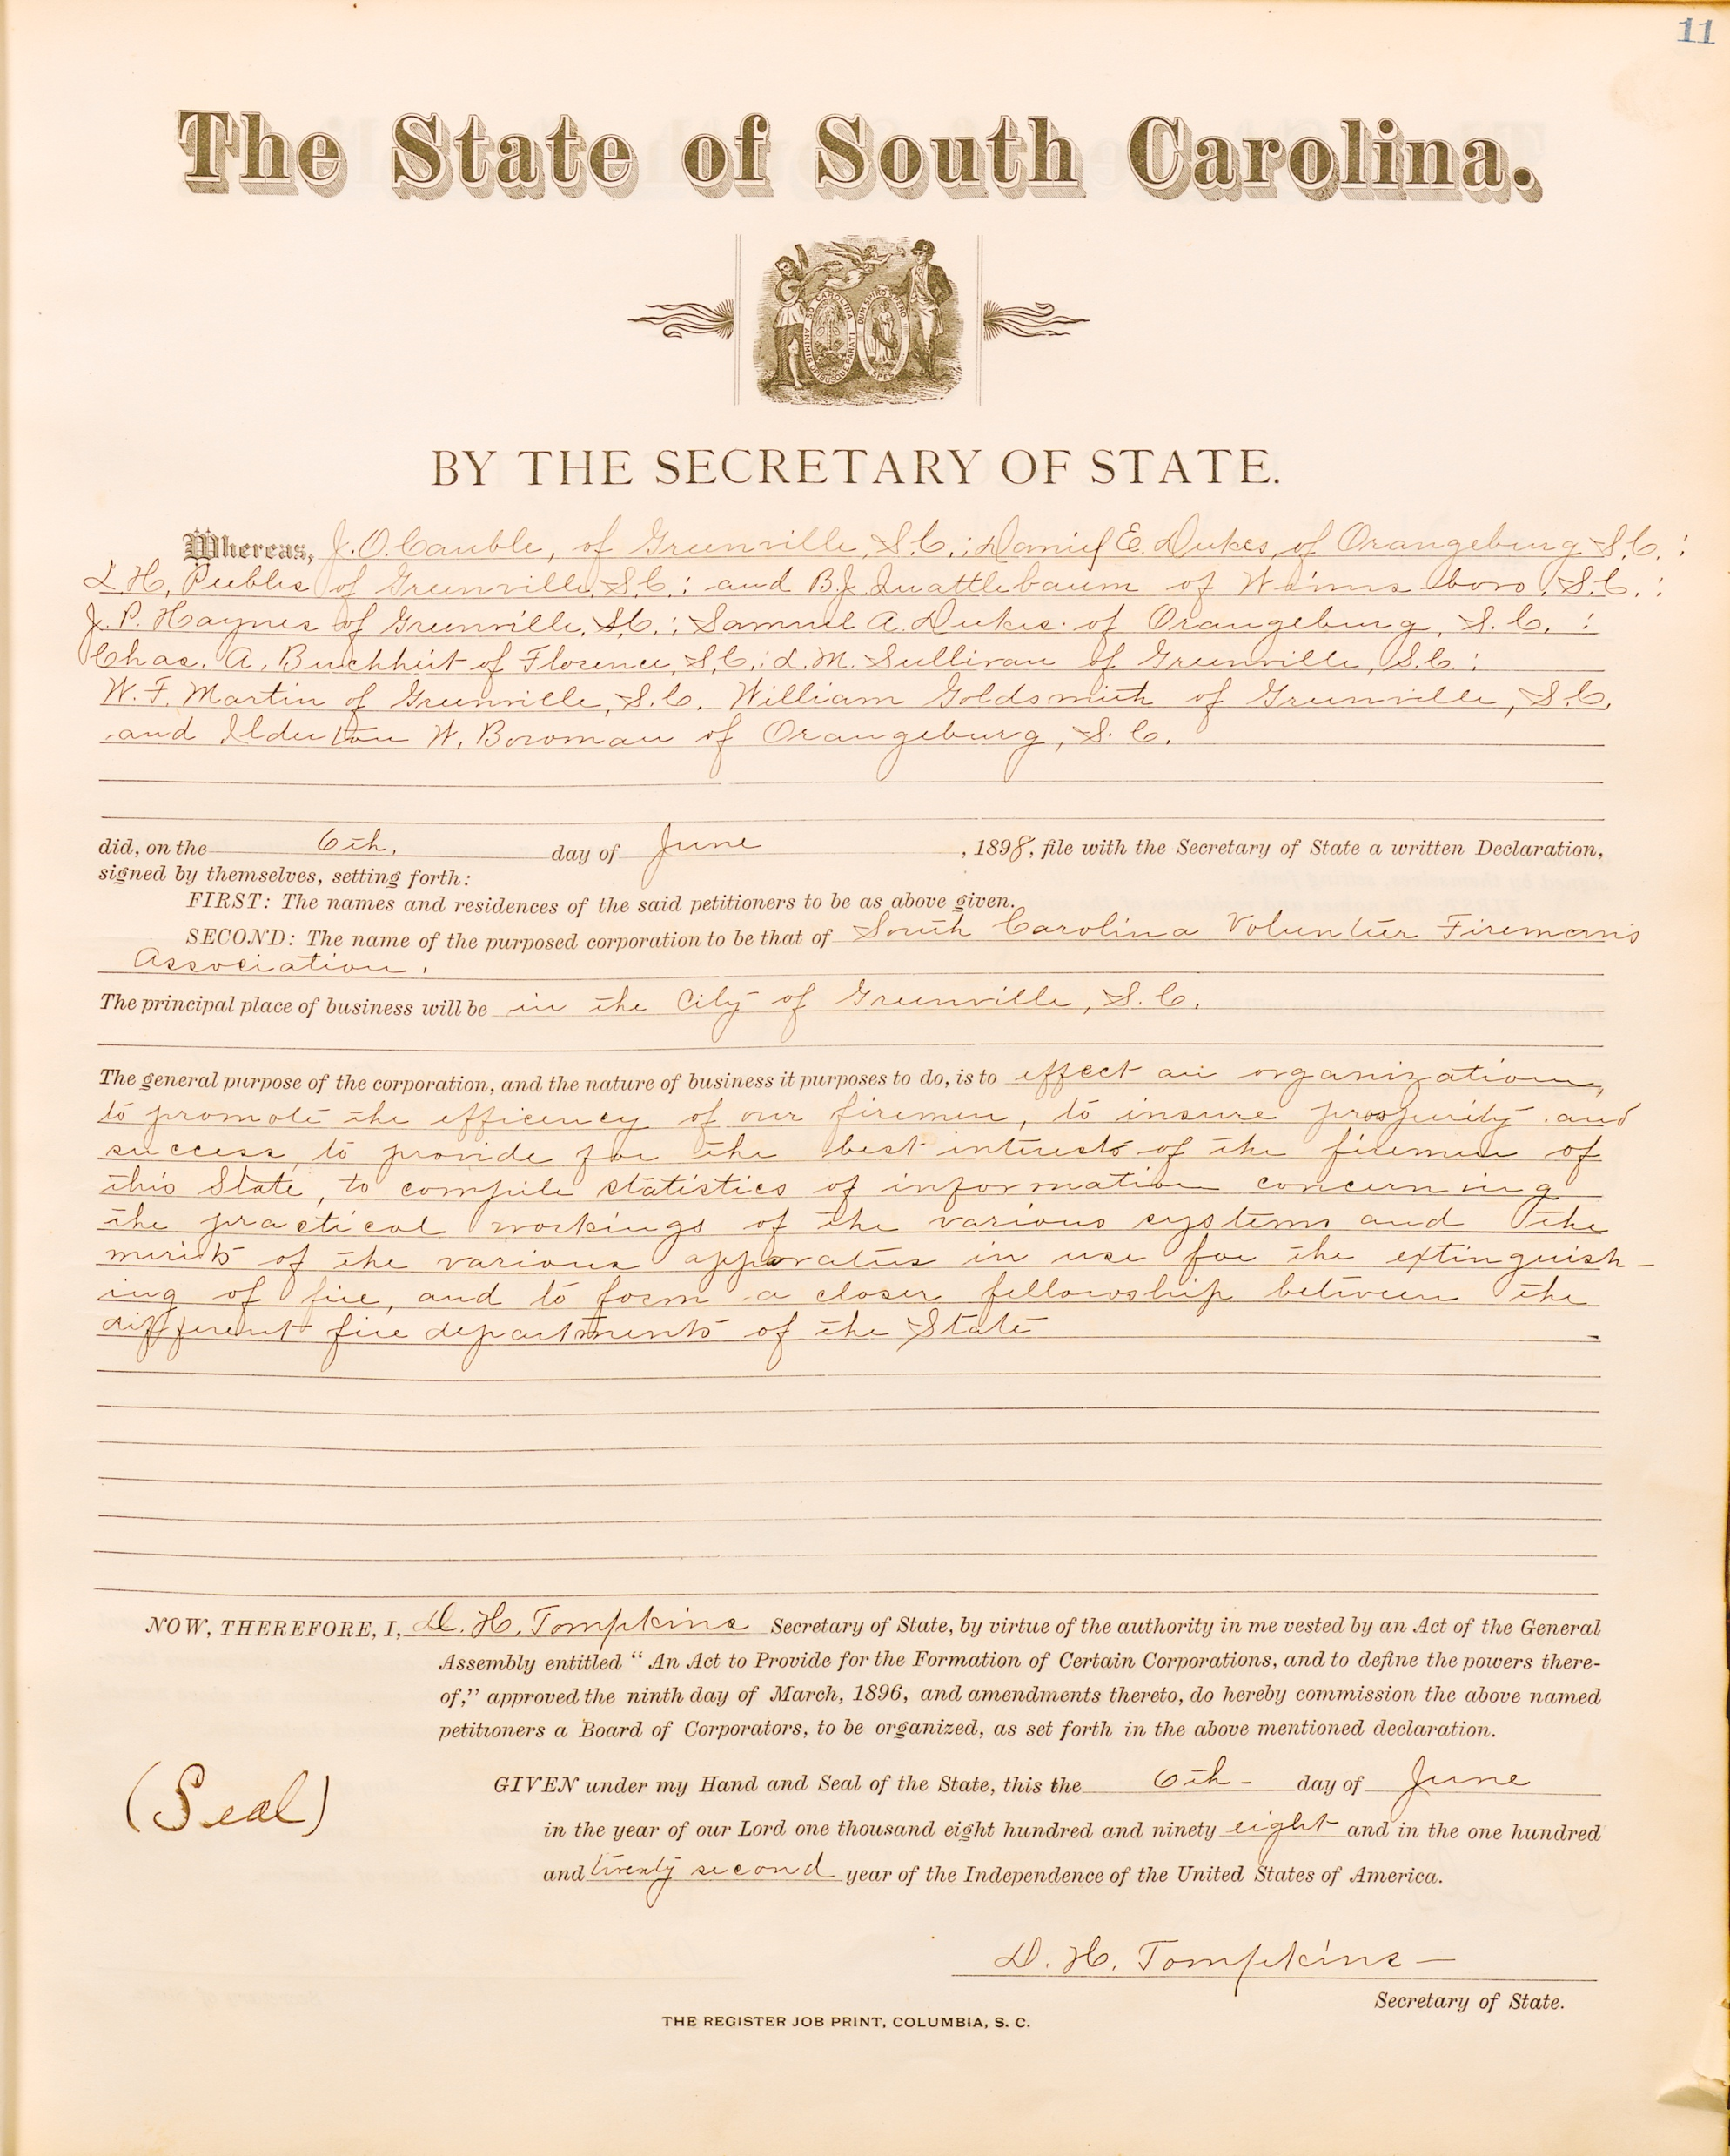 11
The State of South Carolina.
BY THE SECRETARY OF STATE.
Whereas, J. O. Cauble, of Greenville, S.C.; Daniel E. Dukes, of Orangeburg S.C.;
L. H. Peebles of Greenville, S.C.; and B. J. Quattlebaum of Winnsboro, S.C.;
J. P. Haynes of Greenville, S.C.; Samuel A. Dukes of Orangeburg, S.C.;
Chas. A. Buchheit of Florence, S.C.; L. M. Sullivan of Greenville, S.C.;
W. F. Martin of Greenville, S.C. William Goldsmith of Greenville, S.C.
and W. Bowman of Orangeburg, S.C.
did, on the 6th. day of June, 1898, file with the Secretary of State a written Declaration,
signed by themselves, setting forth:
FIRST: The names and residences of the said petitioners to be as above given.
SECOND: The name of the purposed corporation to be that of South Carolina Volunteer Firemans
Association.
The principal place of business will be in the City of Greenville, S.C.
The general purpose of the corporation, and the nature of business it purposes to do, is to effect an organization,
to promote the efficency of our firemen, to insure prosperity and
success, to provide for the best interests of the firemen of
this State, to compile statistics of information concerning
the practical workings of the various systems and the
merits of the various apparatus in use for the extinguish-
ing of fire, and to form a closer fellowship between the
different fire departments of the State
NOW, THEREFORE, I, D. H. Tompkins Secretary of State, by virtue of the authority in me vested by an Act of the General
Assembly entitled "An Act to Provide for the Formation of Certain Corporations, and to define the powers there-
of," approved the ninth day of March, 1896, and amendments thereto, do hereby commission the above named
petitioners a Board of Corporators, to be organized, as set forth in the above mentioned declaration.
(Seal)
GIVEN under my Hand and Seal of the State, this the 6th- day of June
in the year of our Lord one thousand eight hundred and ninety eight and in the one hundred
and twenty second year of the Independence of the United States of America.
D. H. Tompkins—
Secretary of State.
THE REGISTER JOB PRINT, COLUMBIA, S. C.